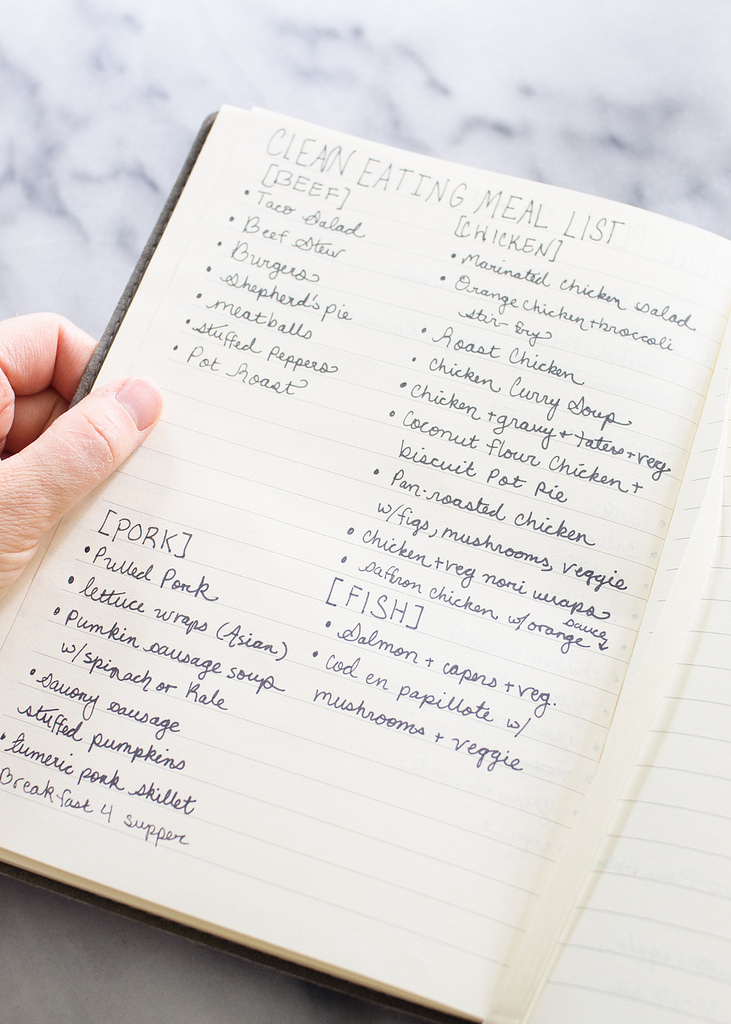 CLEAN EATING MEAL LIST
[BEEF]
• Taco Salad
• Beef Stew
• Burgers
• Shepherd's pie
• meatballs
• stuffed Peppers
• Pot Roast
[CHICKEN]
• Marinated chicken salad
• Orange chicken + broccoli
stir-fry
• Roast Chicken
• Chicken Curry Soup
• chicken + gravy + taters + veg
• Coconut flour chicken +
biscuit Pot Pie
• Pan-roasted chicken
w/figs, mushrooms, veggie
• chicken + veg nori wraps
• saffron chicken w/orange sauce
[PORK]
• Pulled Pork
• lettuce wraps (Asian)
• Pumkin sausage soup
w/spinach or Kale
• Savory sausage
stuffed pumpkins
• tumeric pork skillet
Breakfast 4 supper
[FISH]
• Salmon + capers + veg.
• cod en papillote w/
mushrooms + veggie